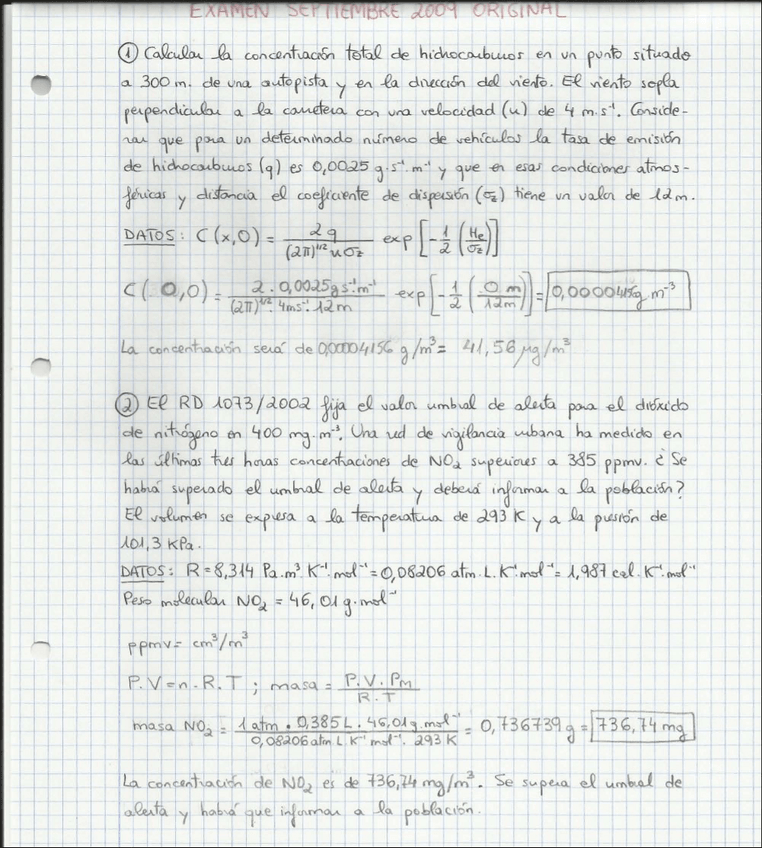 EXAMEN SEPTIEMBRE 2009 ORIGINAL
① Calcular la concentración total de hidrocarburos en un punto situado
a 300 m. de una autopista y en la dirección del viento. El viento sopla
perpendicular a la carretera con una velocidad (u) de 4 m·s⁻¹. Conside-
rar que para un determinado número de vehículos la tasa de emisión
de hidrocarburos (q) es 0,0025 g·s⁻¹·m⁻¹ y que en esas condiciones atmos-
féricas y distancia el coeficiente de dispersión (σz) tiene un valor de 12 m.
DATOS: C(x,0) = 2q / (2π)^1/2 u σz exp[-1/2 (He/σz)]
C(0,0) = 2·0,0025 g s⁻¹ m⁻¹ / (2π)^1/2·4ms⁻¹·12m exp[-1/2 (0 m/12m)] = 0,00004156 g m⁻³
La concentración será de 0,00004156 g/m³ = 41,56 μg/m³
② El RD 1073/2002 fija el valor umbral de alerta para el dióxido
de nitrógeno en 400 mg·m⁻³. Una red de vigilancia urbana ha medido en
las últimas tres horas concentraciones de NO₂ superiores a 385 ppmv. ¿Se
habrá superado el umbral de alerta y deberá informar a la población?
El volumen se expresa a la temperatura de 293 K y a la presión de
101,3 KPa.
DATOS: R = 8,314 Pa·m³·K⁻¹·mol⁻¹ = 0,08206 atm·L·K⁻¹·mol⁻¹ = 1,987 cal·K⁻¹·mol⁻¹
Peso molecular NO₂ = 46,01 g·mol⁻¹
ppmv = cm³/m³
P.V = n.R.T ; masa = P.V.PM / R.T
masa NO₂ = 1 atm · 0,385 L · 46,01 g·mol⁻¹ / 0,08206 atm L K⁻¹ mol⁻¹ · 293 K = 0,736739 g = 736,74 mg
La concentración de NO₂ es de 736,74 mg/m³. Se supera el umbral de
alerta y habrá que informar a la población.